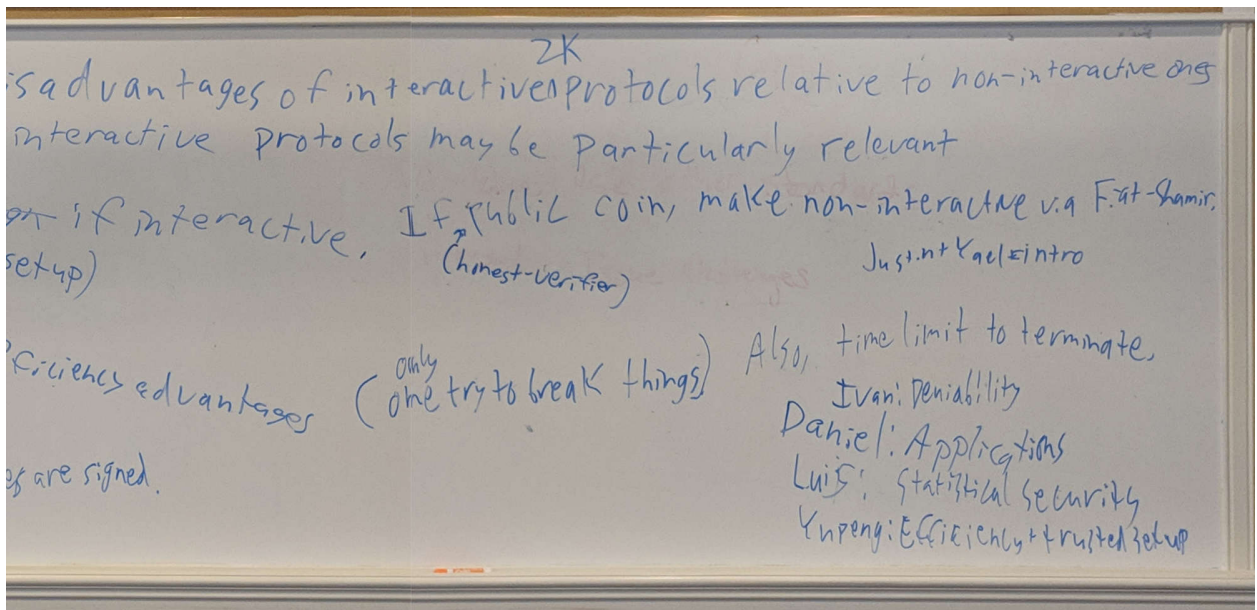 ZK
isadvantages of interactive^protocols relative to non-interactive ones
interactive protocols may be particularly relevant
if interactive. If public coin, make non-interactive via Fiat-Shamir.
setup)
(honest-verifier)
Justin+Yael=intro
ficiency advantages (only one try to break things) Also, time limit to terminate.
Ivan: Deniability
Daniel: Applications
Luis: Statistical Security
es are signed.
Yupeng: Efficiency + trusted setup